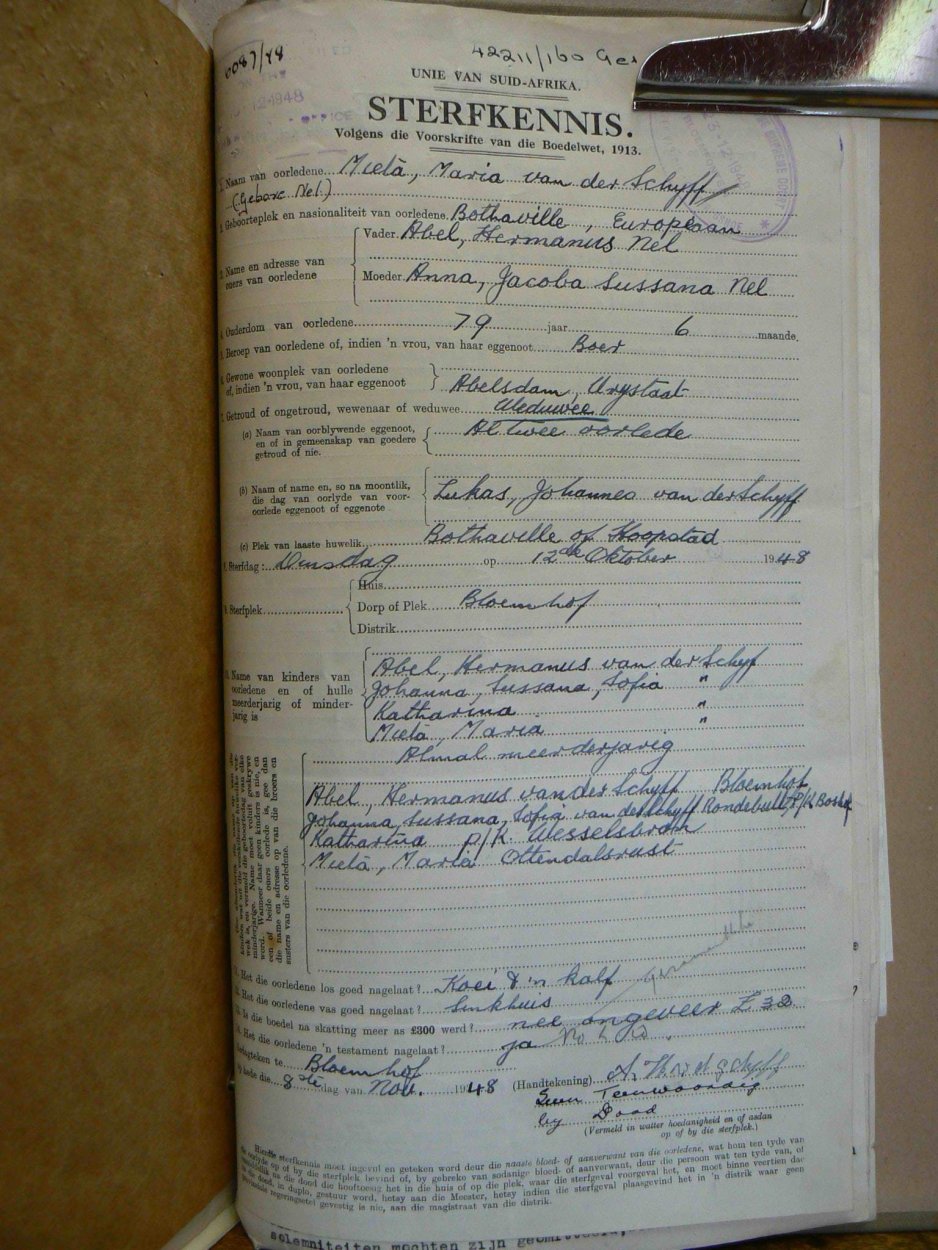 0087/48
42211/160
UNIE VAN SUID-AFRIKA.
STERFKENNIS.
Volgens die Voorskrifte van die Boedelwet, 1913.
Naam van oorledene Mieta, Maria van der Schyff
(Gebore Nel.)
Geboorteplek en nasionaliteit van oorledene. Bothaville, Europeaan
Name en adresse van ouers van oorledene
Vader Abel, Hermanus Nel
Moeder Anna, Jacoba Sussana Nel
Ouderdom van oorledene 79 jaar 6 maande.
Beroep van oorledene of, indien 'n vrou, van haar eggenoot Boer
Gewone woonplek van oorledene
of, indien 'n vrou, van haar eggenoot Abelsdam, Vrystaat
7. Getroud of ongetroud, wewenaar of weduwee Weduwee
(a) Naam van oorblywende eggenoot,
en of in gemeenskap van goedere
getroud of nie.
Al twee oorlede
(b) Naam of name en, so na moontlik,
die dag van oorlyde van voor-
oorlede eggenoot of eggenote
Lukas, Johannes van der Schyff
(c) Plek van laaste huwelik Bothaville of Hoopstad
Sterfdag: Dinsdag op 12de Oktober 1948
Sterfplek
Huis
Dorp of Plek Bloemhof
Distrik
Name van kinders van
oorledene en of hulle
meerderjarig of minder-
jarig is
Abel, Hermanus van der Schyf
Johanna, Sussana, Sofia "
Katharina "
Mieta, Maria "
Almal meerderjarig
Abel, Hermanus van der Schyff Bloemhof
Johanna, Sussana, Sofia van der Schyff Rondebult, P/K
Katharina p/k Wesselsbron
Mieta, Maria Ottendalsrust
Het die oorledene los goed nagelaat? Koei & 'n kalf
Het die oorledene vas goed nagelaat? Sinkhuis
Is die boedel na skatting meer as £300 werd? nee ongeveer £30
Het die oorledene 'n testament nagelaat? ja
Gedagteken te Bloemhof
op hede die 8ste dag van Nov. 1948 (Handtekening)
Teenwoordig
by Dood
(Vermeld in watter hoedanigheid en of asdan
op of by die sterfplek.)
Hierdie sterfkennis moet ingevul en geteken word deur die naaste bloed- of aanverwant van die oorledene, wat hom ten tyde van
die oorlyde op of by die sterfplek bevind of, by gebreke van sodanige bloed- of aanverwant, deur die persoon wat ten tyde van, of
onmiddellik na die dood die hooftoesig het in die huis of op die plek, waar die sterfgeval voorgeval het, en moet binne veertien dae
na die dood, in duplo, gestuur word, hetsy aan die Meester, hetsy indien die sterfgeval plaasgevind het in 'n distrik waar geen
regeringsetel gevestig is nie, aan die magistraat van die distrik.
solemniteiten mochten zijn